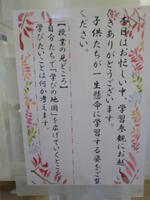 本日はお忙しい中、学習参観にお越し
いただきありがとうございます。
子供たちが一生懸命に学習する姿をご覧
ください。
【授業の見どころ】
自分たちで「学びの地図」を広げていくところ
学びたいことは何か考えます